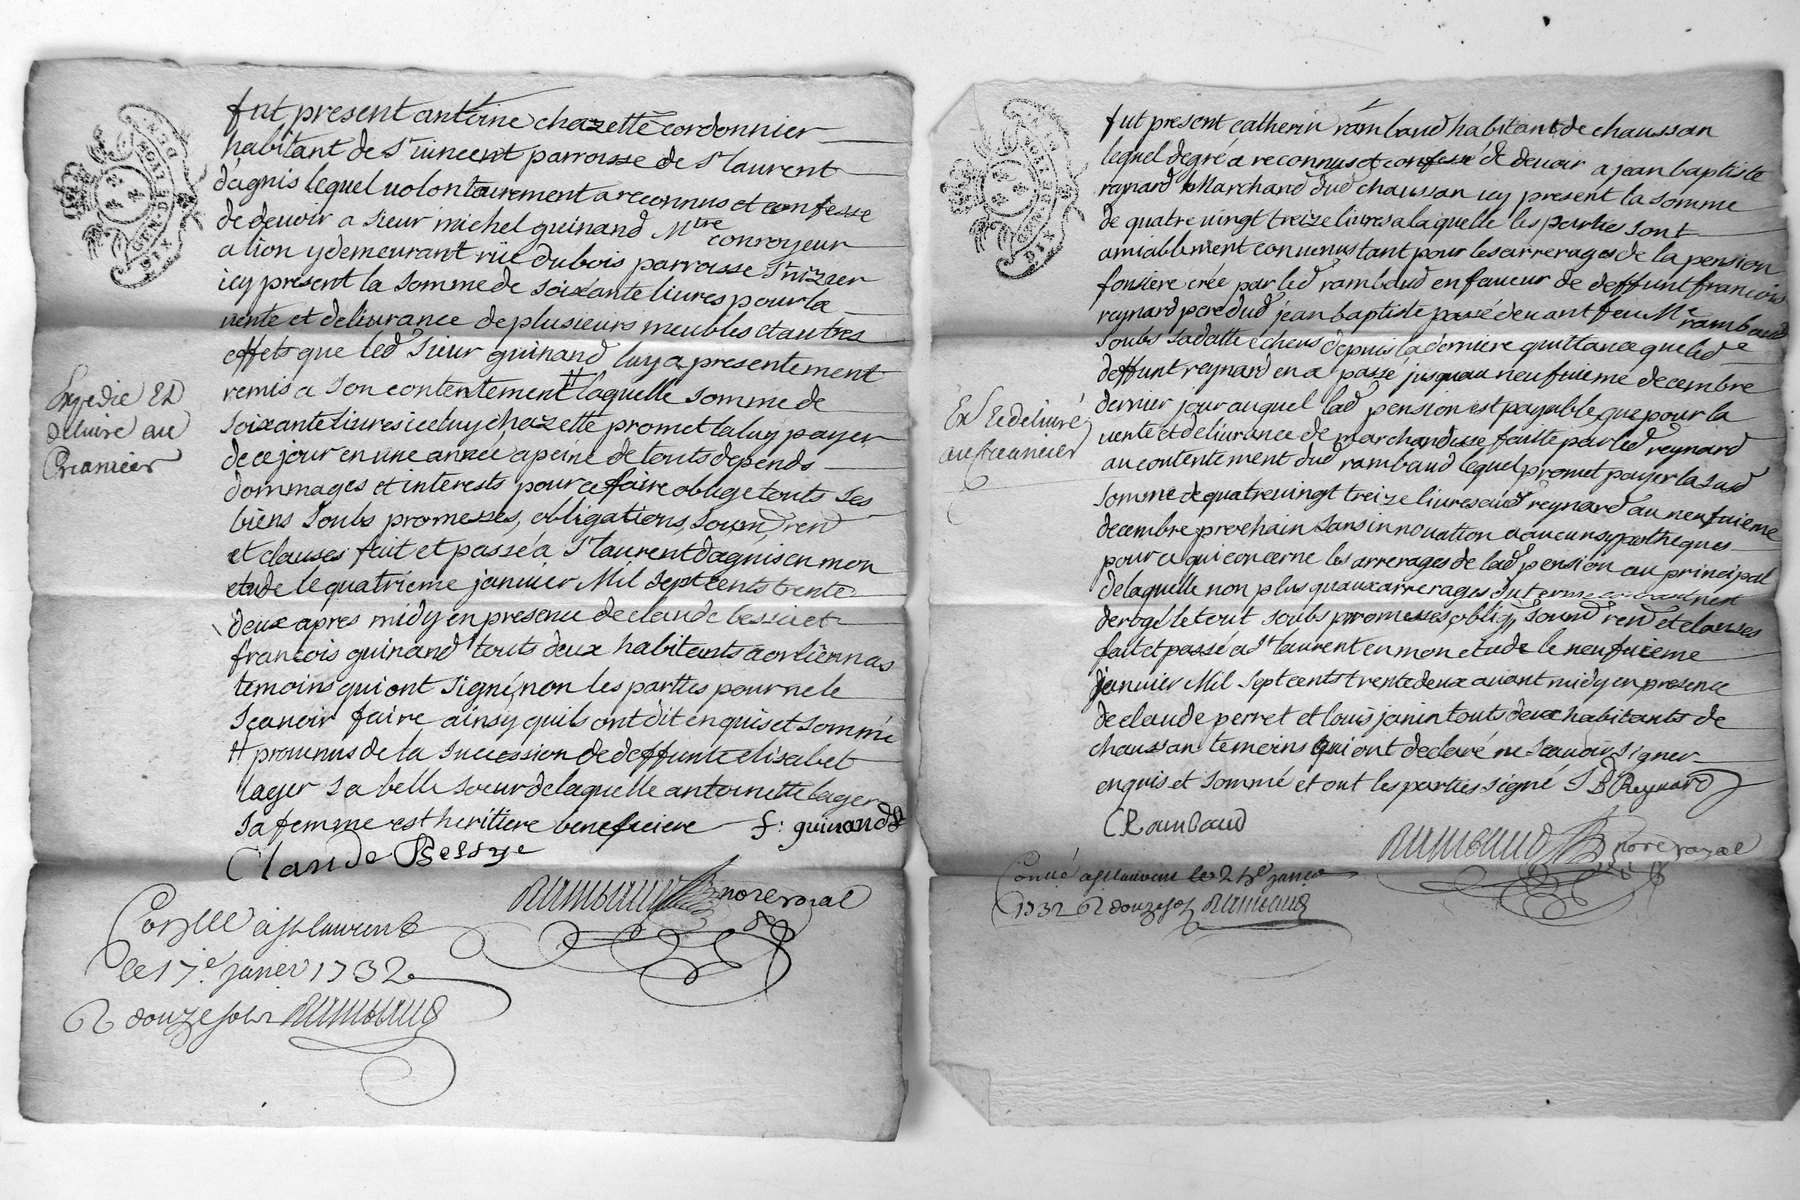 fut present antoine chazette cordonnier
habitant de St vincent parroisse de St laurent
dagnis lequel volontairement a reconnus et confesse
de devoir a sieur michel guinand Mtre conroyeur
a lion y demeurant rüe dubois parroisse St nizier
icy present la somme de soixante livres pour la
vente et delivrance de plusieurs meubles et autres
effets que led sieur guinand luy a presentement
remis a son contentement # laquelle somme de
soixante livres iceluy chazette promet a luy payer
de ce jour en une année a peine de touts depends
dommages et interests pour ce faire oblige touts ses
biens soubs promesses, obligations, soum, ren
et clauses fait et passé a St laurent dagnis en mon
etude le quatrieme janvier Mil sept cents trente
deux apres midy en presence de claude bessie et
francois guinand touts deux habitants a orliennas
temoins qui ont signé, non les parties pour ne le
scavoir faire ainsy quils ont dit enquis et sommé
# provenus de la succession de deffunte elisabet
layer sa belle soeur de laquelle antoinette layer
sa femme est heritiere beneficiere f: guinand
Claude Bessye
Expedie Et
delivre au
Creancier
rambaud nore royal
Conlle a st laurent
le 17e janer 1732
R douze sols rambaud
DIX DEN
GEN. DE LION
fut present catherin rambaud habitant de chaussan
lequel de gré a reconnus et confessé de devoir a jean baptiste
reynard Marchand dud chaussan icy present la somme
de quatre vingt treize livres a laquelle les parties sont
amiablement convenus tant pour les arrerages de la pension
fonsiere crée par led rambaud en faveur de deffunt francois
reynard pere dud jean baptiste passé devant feu Me rambaud
soubs sa datte echeus depuis la derniere quittance que led
deffunt reynard en a passe jusquau neufvieme decembre
dernier jour auquel lad pension est payable, que pour la
vente et delivrance de marchandisse faitte par led reynard
au contentement dud rambaud lequel promet payer la susd
somme de quatre vingt treize livres aud reynard au neufvieme
decembre prochain sans innovation a aucuns ypotheques
pour ce qui concerne les arrerages de lad pension au principal
de laquelle non plus quaux arrerages du terme courant nest
derogé le tout soubs promesses, oblig, soum ren et clauses
fait et passé a St laurent en mon etude le neufvieme
janvier Mil sept cents trente deux avant midy en presence
de claude perret et louis janin touts deux habitants de
chaussan temoins qui ont declaré ne scavoir signer
enquis et sommé et ont les parties signé J B Reynard
C Rambaud
Ex Et delivré
au creancier
rambaud nore royal
Conlé a st laurent le 24e janer
1732 R douze sols rambaud
DIX DEN
GEN. DE LION